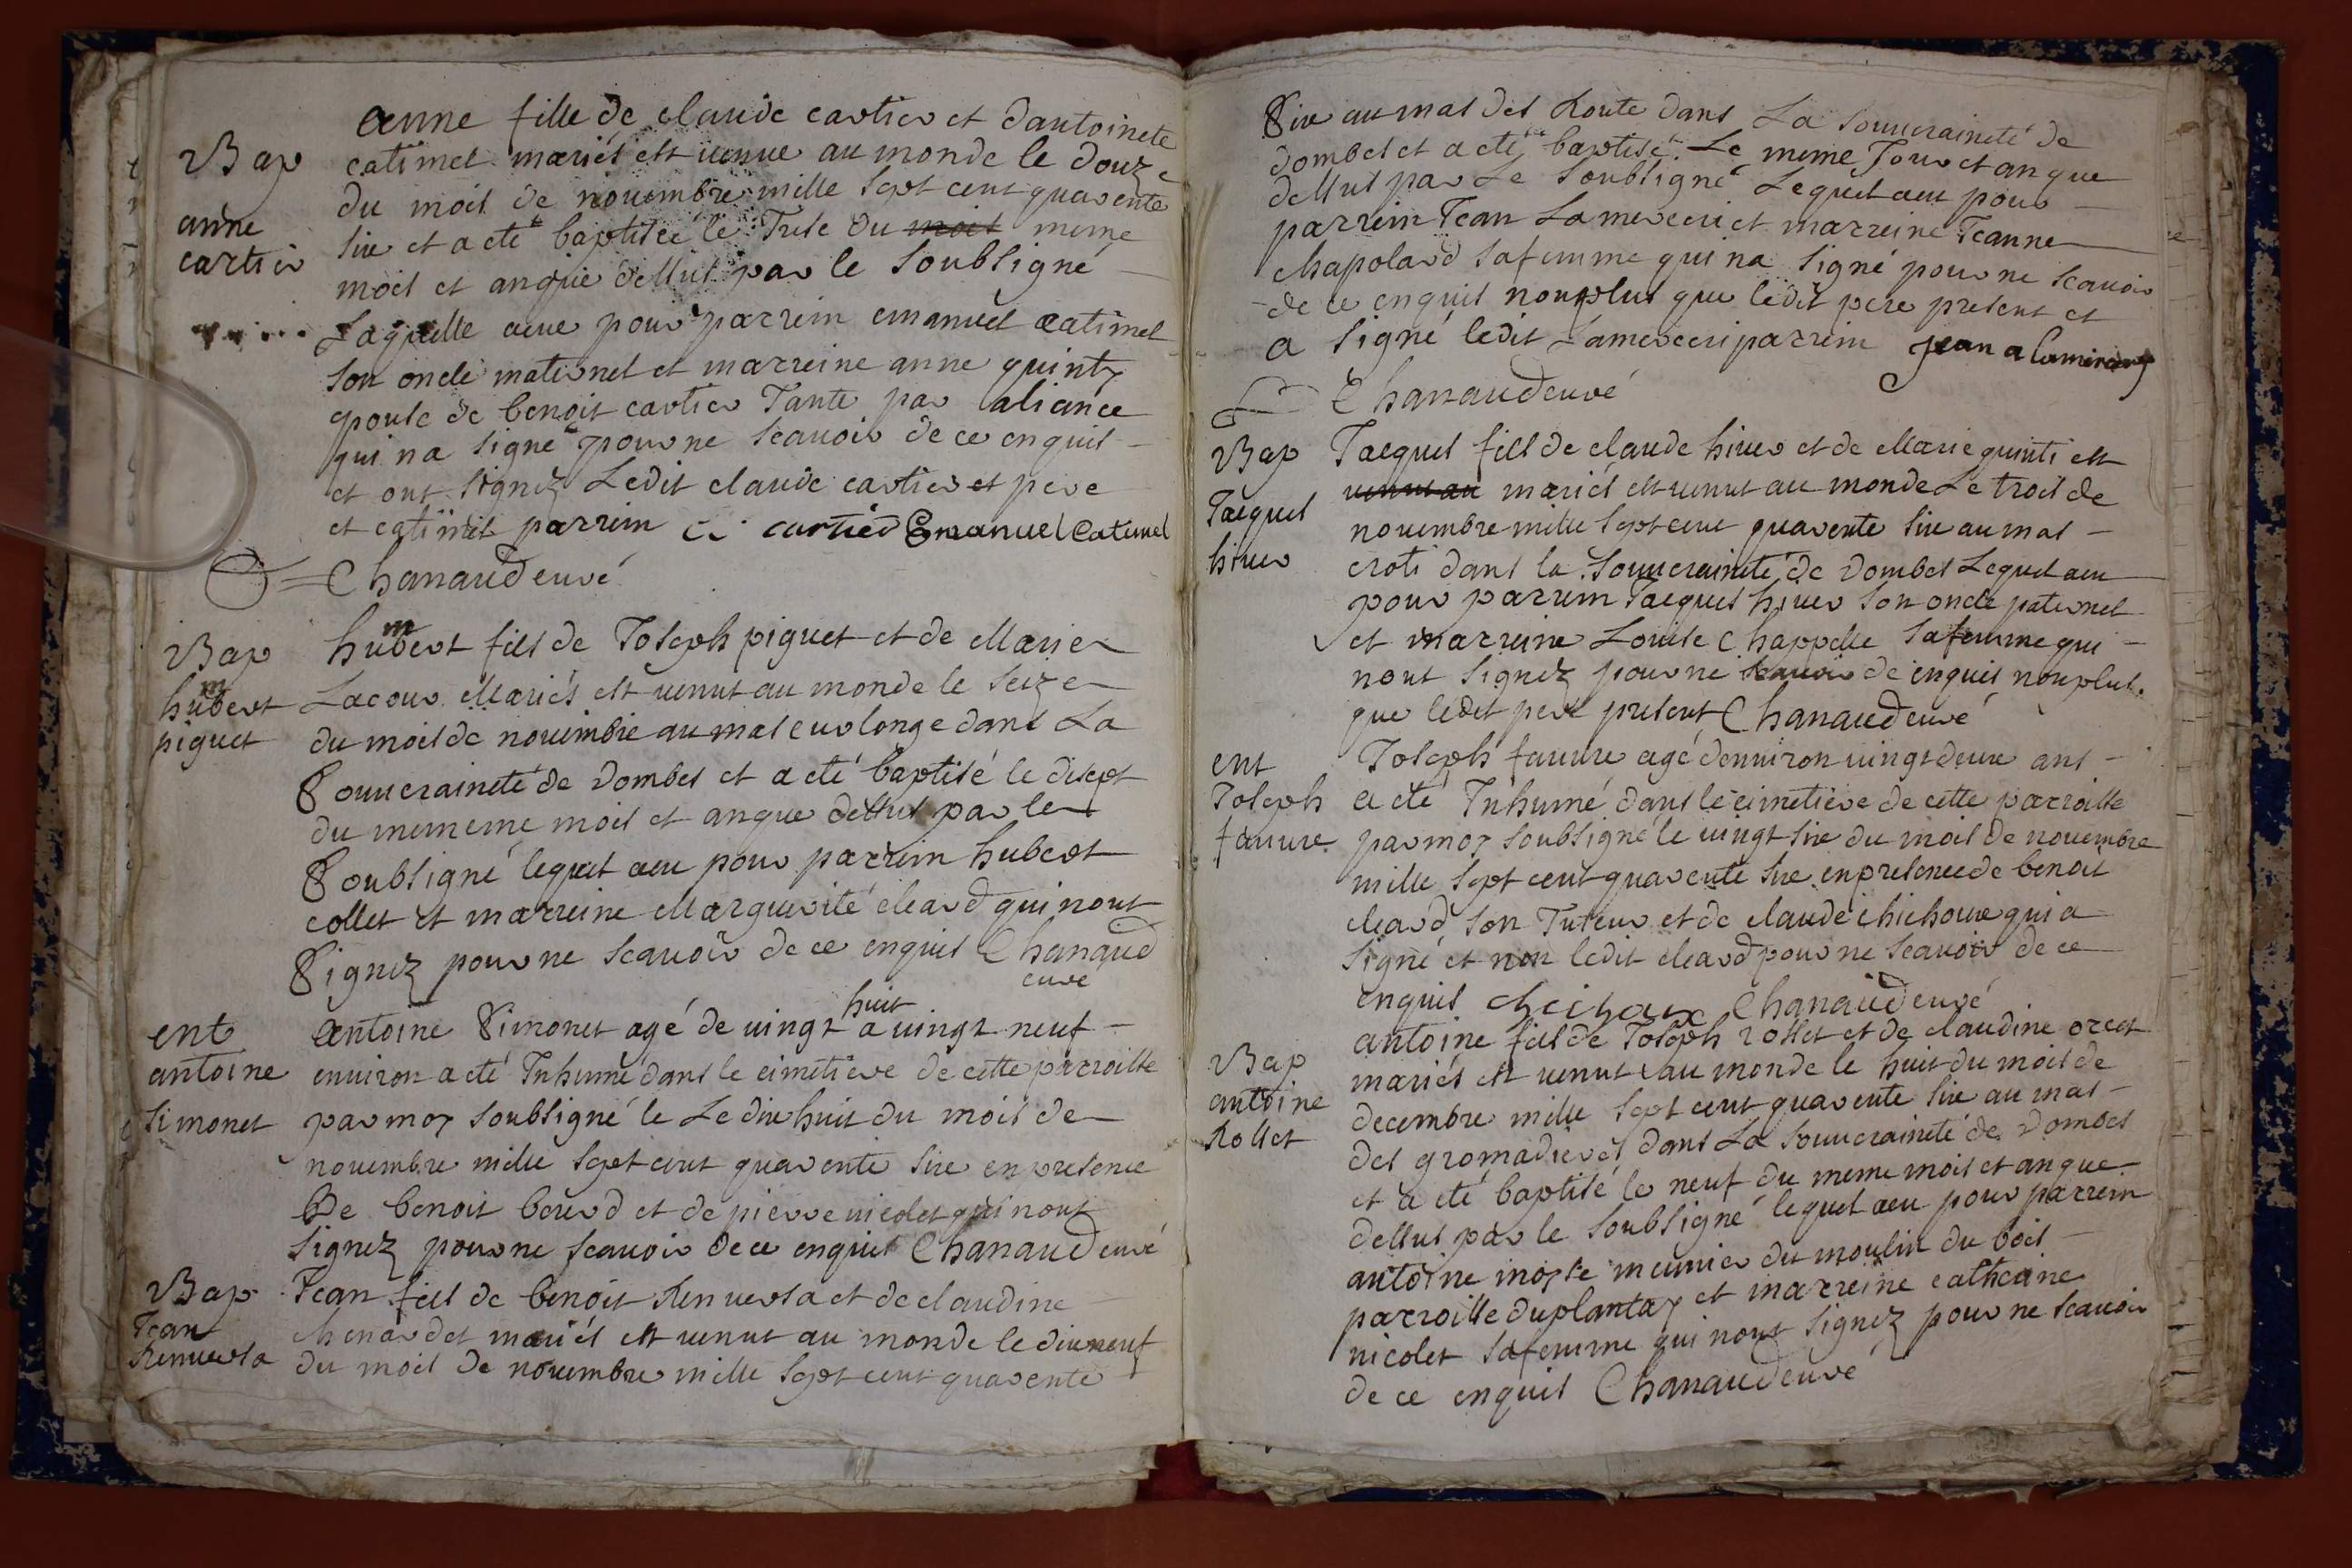 Bap
anne
cartier
anne fille de claude cartier et dantoinete
catimel mariés est venue au monde le douze
du mois de novembre mille sept cent quarente
six et a eté baptisée le Trese du mois meme
mois et anque dessus par le soubsigné
Laquelle aeue pour parrein emanuel catimel
son oncle maternel et marreine anne quinty
epouse de benoit cartier Tante par aliance
qui na signé pour ne scavoir de ce enquis
et ont signez Ledit claude cartier et pere
et catimel parrein C. cartier Emanuel Catimel
Chanaud curé
Bap
humbert
piquet
humbert fils de Joseph piquet et de Marie
Lacour Mariés est venut au monde le seize
du mois de novembre au mas curlonge dans La
Souveraineté de Dombes et a eté baptisé le disept
du mememe mois et anque dessus par le
Soubsigné lequel aeu pour parrein hubert
collet et marreine Marguerite cleard qui nont
Signez pour ne scavoir de ce enquis Chanaud
curé
ent
antoine
simonet
antoine Simonet agé de vingt huit a vingt neuf
environ a eté Inhumé dans le cimetiere de cette parroisse
par moy soubsigné le Le dix huit du mois de
novembre mille sept cent quarente six en presence
De benoit berrd et de pierre nicolet qui nont
signez pour ne scavoir de ce enquis Chanaud curé
Bap
Jean
Renversa
Jean fils de benoit Renversa et de claudine
chenardet mariés est venut au monde le dixneuf
du mois de novembre mille sept cent quarente
Six au mas des Route dans La souveraineté de
dombes et a eté baptisé Le meme Jour et an que
dessus par Le soubsigné Lequel aeu pour
parrein Jean Lamerceri et marreine Jeanne
chapolard sa femme qui na signé pour ne scavoir
de ce enquis nonplus que ledit pere present et
a signé ledit Lamerceri parrein jean alamercery
Chanaud curé
Bap
Jacques
hiver
Jacques fils de claude hiver et de Marie quinti est
venut au mariés est venut au monde Le trois de
novembre mille sept cent quarente six au mas
croti dans la souveraineté de Dombes Lequel aeu
pour parrein Jacques hiver son oncle paternel
et marreine Louise Chappelle sa femme qui
nont signez pour ne scavoir de enquis nonplus
que ledit pere present Chanaud curé
ent
Joseph
fauvre
Joseph fauvre agé denviron vingt deux ans
a eté Inhumé dans le cimetiere de cette parroisse
par moy soubsigné le vingt six du mois de novembre
mille sept cent quarente six en presence de benoit
cleard son Tuteur et de claude chichoux qui a
signé et non ledit cleard pour ne scavoir de ce
enquis cheihoux Chanaud curé
Bap
antoine
Rollet
antoine fils de Joseph rollet et de claudine orcet
mariés est venut au monde le huit du mois de
decembre mille sept cent quarente six au mas
des gromadieres dans La souveraineté de Dombes
et a eté baptisé le neuf du meme mois et an que
dessus par le soubsigné lequel aeu pour parrein
antoine meunier du moulin du bois
parroisse duplantay et marreine catherine
nicolet sa femme qui nont signez pour ne scavoir
de ce enquis Chanaud curé